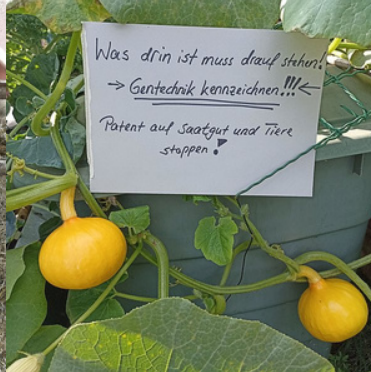 Was drin ist muss drauf stehen!
→ Gentechnik kennzeichnen!!! ←
Patent auf Saatgut und Tiere
stoppen!